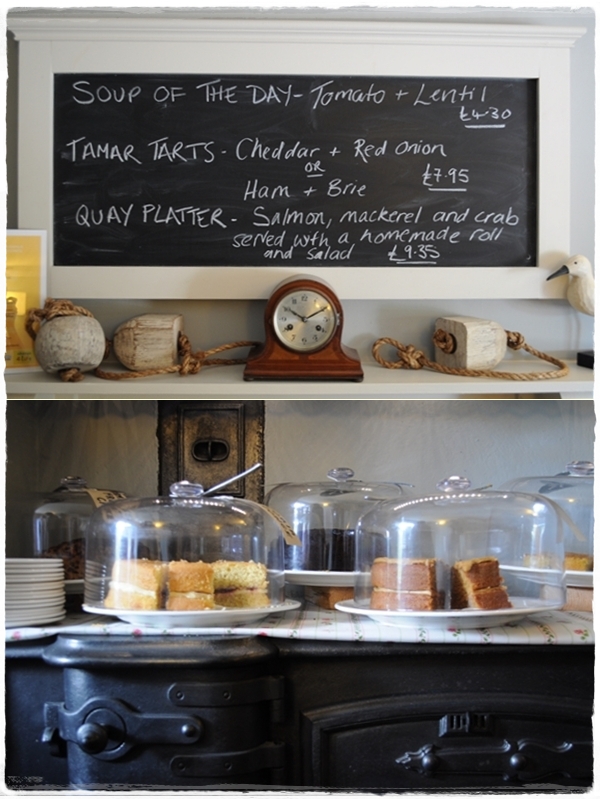 SOUP OF THE DAY - Tomato + Lentil
£4.30
TAMAR TARTS - Cheddar + Red Onion
OR
£7.95
Ham + Brie
QUAY PLATTER - Salmon, mackerel and crab
served with a homemade roll
and salad £9.35